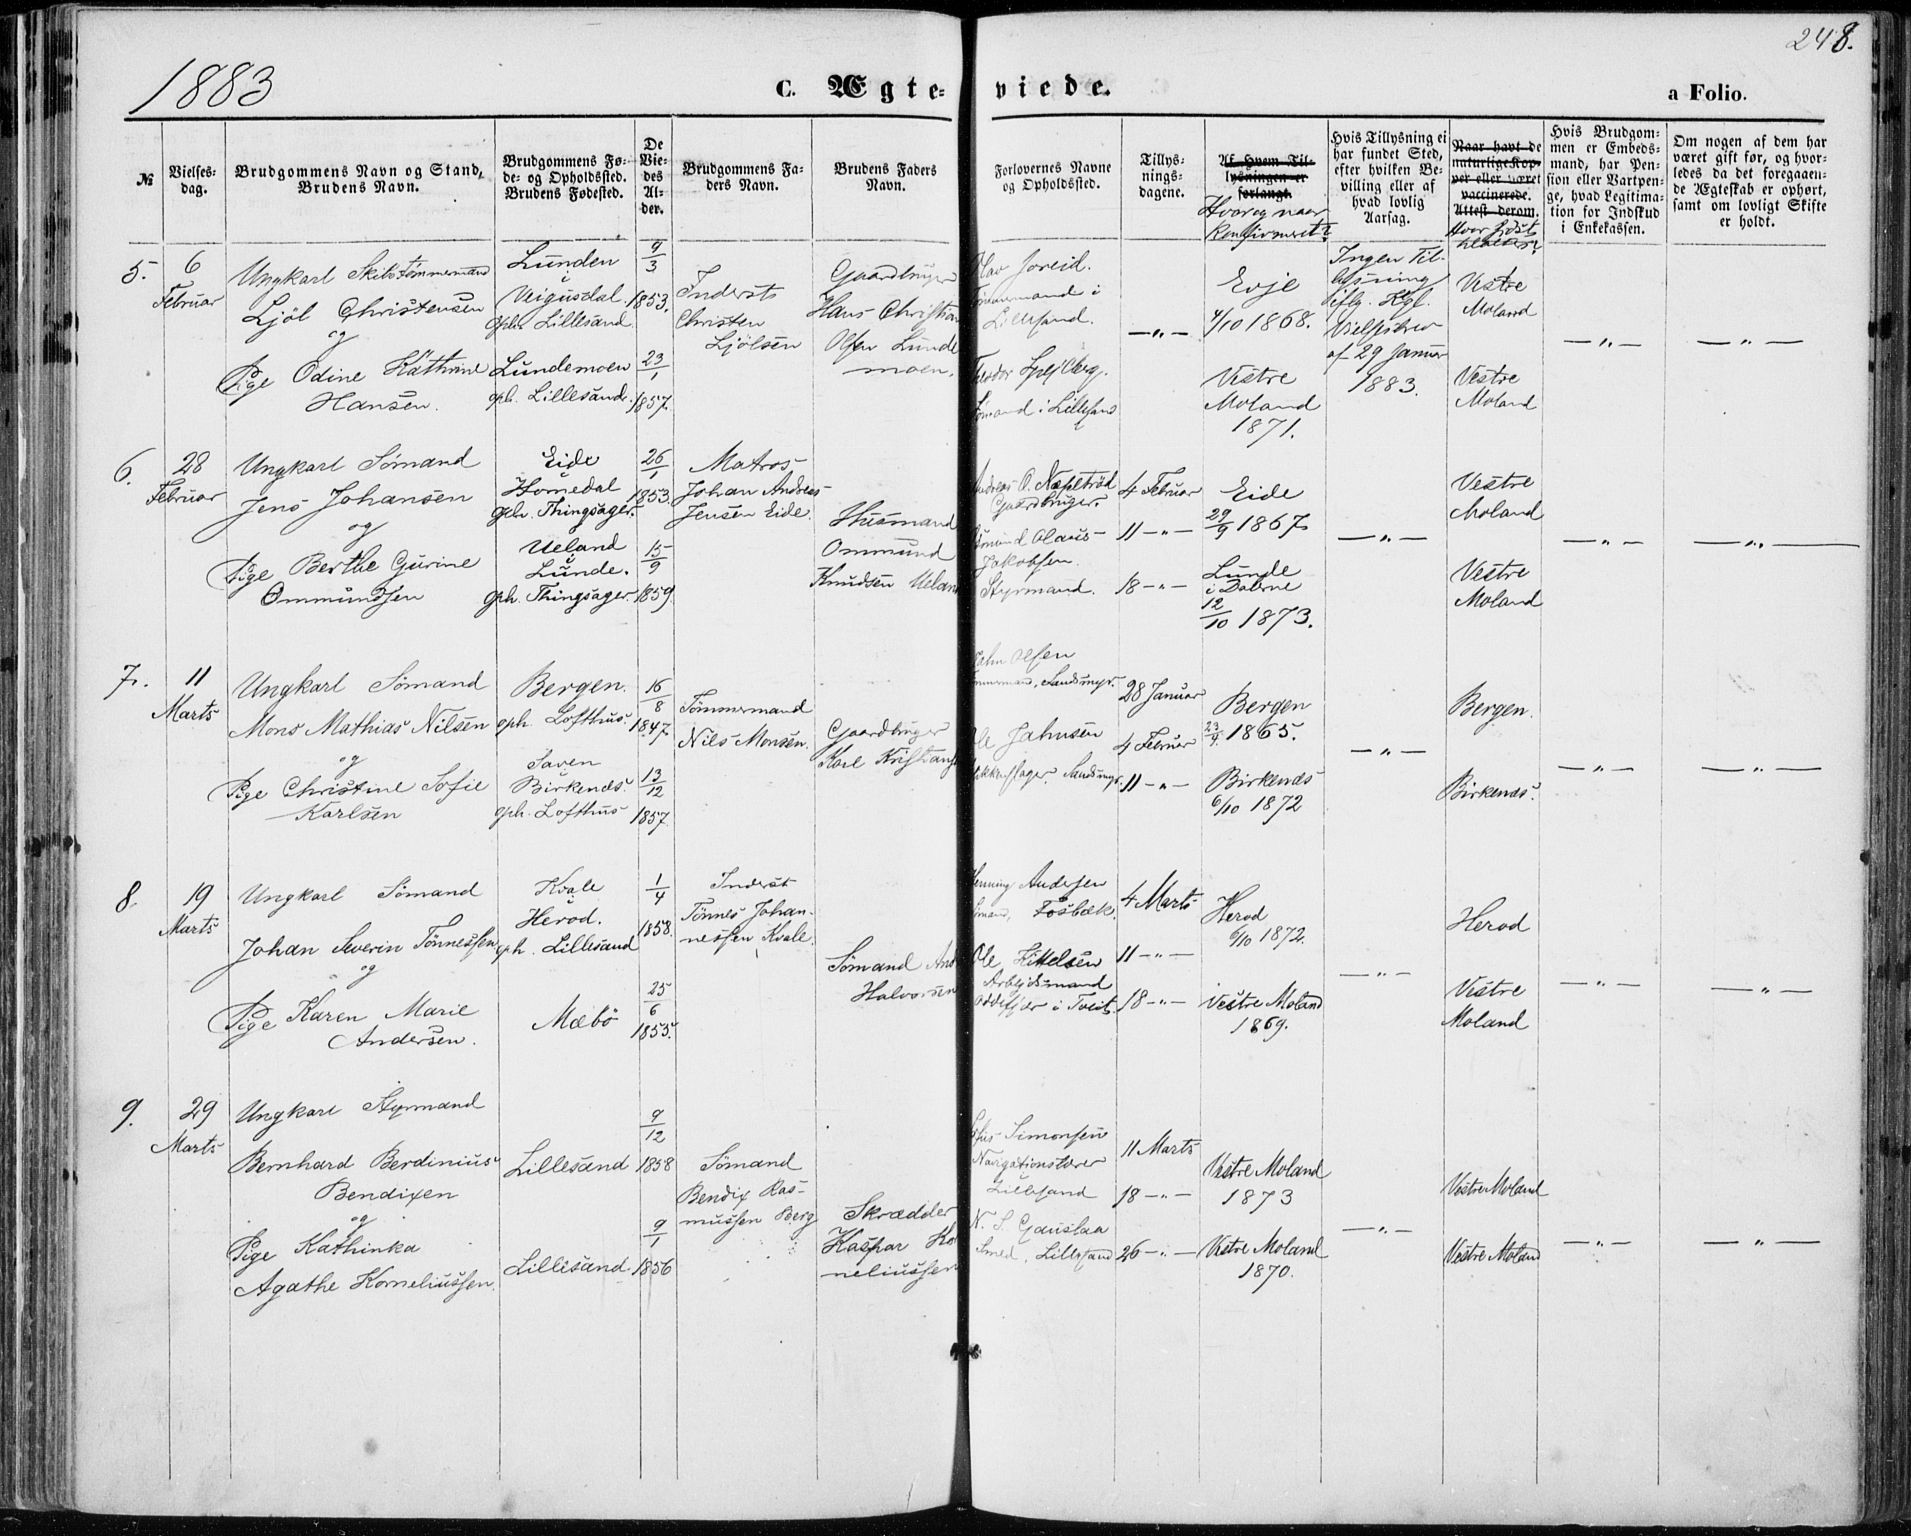 1883
C. Ægte-
viede.
a Folio.
248.
№
Vielses-
dag.
Brudgommens Navn og Stand,
Brudens Navn.
Brudgommens Fø-
de- og Opholdssted.
Brudens Fødested.
De
Vie-
des
Al-
der.
Brudgommens Fa-
ders Navn.
Brudens Faders
Navn.
Forlovernes Navne
og Opholdssted.
Tillys-
nings-
dagene.
Af Hvem Til-
lysningen er
forlangt.
Hvor og naar
Konfirmeret?
Hvis Tillysning ei
har fundet Sted,
efter hvilken Be-
villing eller af
hvad lovlig
Aarsag.
Naar havt de
naturlige Kop-
per eller været
vaccinerede.
Attest derom.
Hvor sidst
Hvis Brudgom-
men er Embeds-
mand, har Pen-
sion eller Vartpen-
ge, hvad Legitima-
tion for Indskud
i Enkekassen.
Om nogen af dem har
været gift før, og hvor-
ledes da det foregaaen-
de Ægteskab er ophørt,
samt om lovligt Skifte
er holdt.
5.
6
Februar
Ungkarl Skibstømmermand
Ljöl Christensen
og
Pige Odine Kathrine
Hansen.
Lunden
i
Veigusdal
oph. Lillesand.
Lundemoen
oph. Lillesand.
9/3
1853.
23/1
1857.
Inderst
Christen
Ljölsen
Gaardbruger
Hans Christian
Olsen Lunde
moen.
Olav Joreid.
Tömmermand i
Lillesand.
Sömand i Lillesand
—„—
Evje
4/10 1868.
Vestre
Moland
1871.
Ingen Til-
lysning
iflg. Kgl.
Vielsesbrev
af 29 Januar
1883.
Vestre
Moland
Vestre
Moland
—„—
—„—
6.
28
Februar
Ungkarl Sömand
Jens Johansen
og
Pige Berthe Gurine
Ommundsen
Eide
i
Homedal
oph. Thingsager.
Ueland
i
Lunde.
oph. Thingsager.
26/1
1853.
15/9
1859.
Matros
Johan Andreas
Jensen Eide.
Husmand
Ommund
Knudsen Ueland
Andreas O. Næseltröd
Gaardbruger.
Ommund Olaus
Jakobsen.
Styrmand.
4 Februar
11 —„—
18 —„—
Eide
29/9 1867.
Lunde
i Dalerne
12/10 1873.
—„—
Vestre
Moland
Vestre
Moland
—„—
—„—
7.
11
Marts
Ungkarl Sömand
Mons Mathias Nilsen
og
Pige Christine Sofie
Karlsen
Bergen.
oph. Lofthus.
Saven
i
Birkenæs.
oph. Lofthus
16/8
1847.
13/12
1857.
Tömmermand
Nils Monsen.
Gaardbruger
Karl Kristians
Jahn Olsen
Tömmermand, Sandsmyr.
Ole Jahnsen
Blikkenslager. Sandsmyr.
28 Januar
4 Februar
11 —„—
Bergen
23/9. 1865.
Birkenæs
6/10 1872
—„—
Bergen.
Birkenæs.
—„—
—„—
8.
19
Marts
Ungkarl Sömand
Johan Severin Tönnessen
og
Pige Karen Marie
Andersen.
Kvale
i
Herod.
oph. Lillesand
Mæbö
1/4
1858.
25/6
1855.
Inderst
Tönnes Johan-
nessen Kvale.
Sömand And
Halvorsen
Henning Andersen
Sömand, Fosbæk.
Ole Kittelsen
Arbeidsmand
Oddefjær i Tveit.
4 Marts
11 —„—
18 —„—
Herod
6/10 1872.
Vestre Moland
1869.
—„—
Herod
Vestre
Moland
—„—
—„—
9.
29
Marts
Ungkarl Styrmand
Bernhard Berdinius
Bendixen
og
Pige Kathinka
Agathe Korneliussen.
Lillesand
Lillesand.
9/12
1858
9/1
1856
Sömand
Bendix Ras-
mussen Berg
Skrædder
Kaspar Kor
neliussen
Simonsen
Navigationslærer
Lillesand
N. S. Gauslaa
Smed, Lillesand
11 Marts
18 —„—
26 —„—
Vestre Moland
1873
Vestre Moland
1870.
—„—
Vestre Moland
Vestre Moland
—„—
—„—